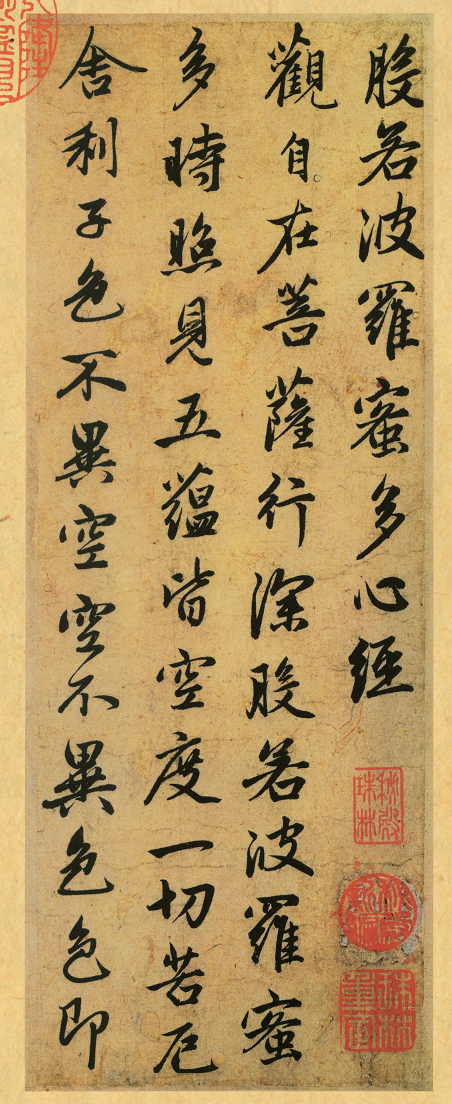 般若波羅蜜多心經
觀自在菩薩行深般若波羅蜜
多時照見五蘊皆空度一切苦厄
舍利子色不異空空不異色色即
秘殿珠林